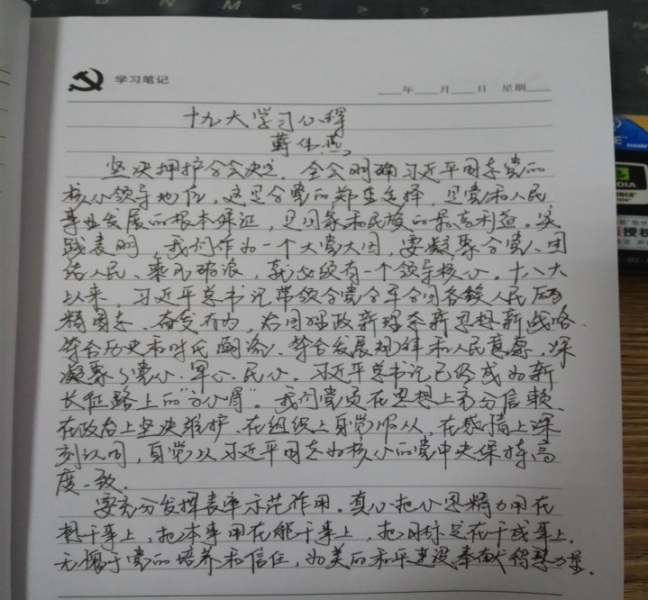 学习笔记
年 月 日 星期
十九大学习心得
蒋伟燕
坚决拥护全会决定。全会明确习近平同志党的
核心领导地位,这是全党的郑重选择,是党和人民
事业发展的根本保证,是国家和民族的最高利益。实
践表明,我们作为一个大党大国,要凝聚全党、团
结人民、乘风破浪,就必须有一个领导核心。十八大
以来,习近平总书记带领全党全军全国各族人民
精图志、奋发有为,治国理政新理念新思想新战略
符合历史和时代 、符合发展规律和人民意愿,深
凝聚了党心、军心、民心。习近平总书记已经成为新
长征路上的"主心骨"。我们党员在思想上充分信赖、
在政治上坚决维护、在组织上自觉服从、在感情上深
刻认同,自觉以习近平同志为核心的党中央保持高
度一致。
要充分发挥表率示范作用。真心把心思精力用在
想干事上,把本事用在能干事上,把目标定在干成事上。
无愧于党的培养和信任,为美的和平建设奉献 力量。
NVIDIA
授权